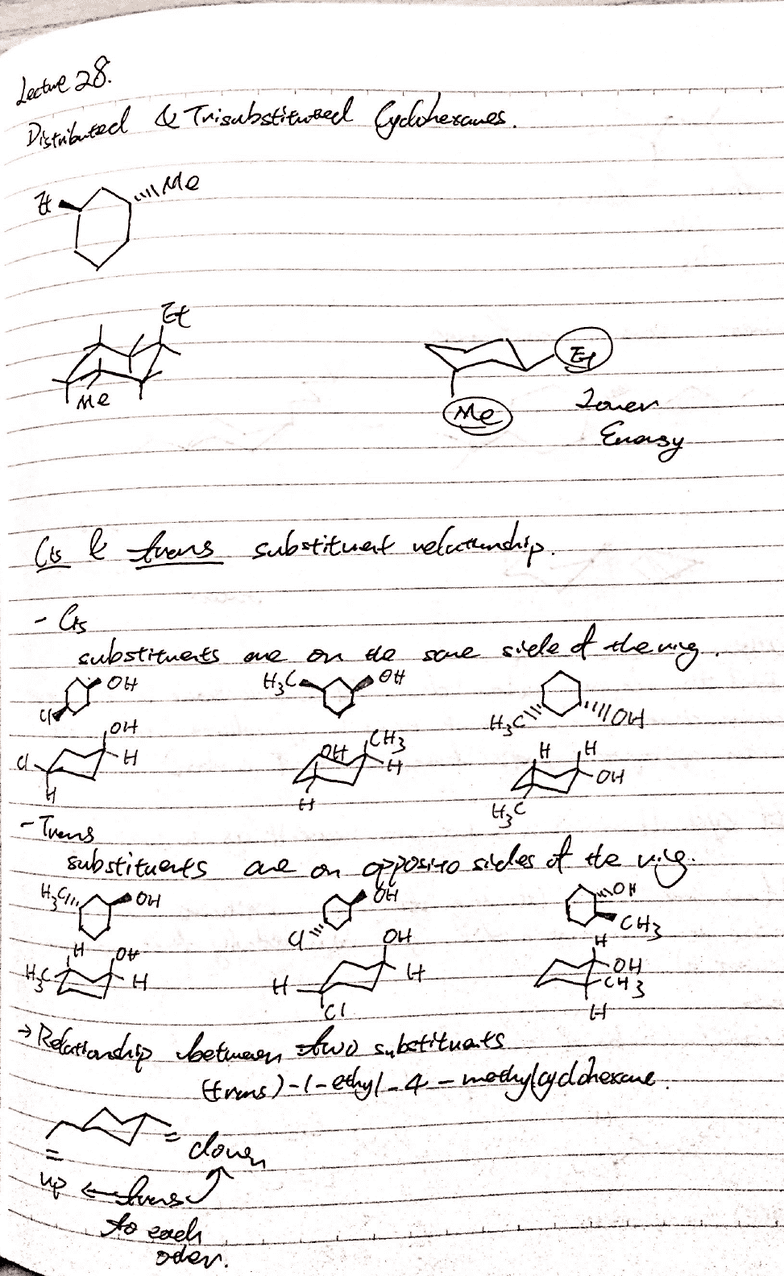 Lecture 28.
Distributed & Trisubstitueed Cyclohexanes.
Et Me
Et
Me
Et
Me
Lower
Energy
Cis & trans substituent relationship.
- Cis
substituents are on the same side of the ring.
OH H₃C OH
Cl H₃C OH
OH OH CH₃ H H
Cl H H OH
H H H₃C
- Trans
substituents are on opposite sides of the ring.
H₃C OH OH OH
Cl CH₃
H OH OH H
H₃C H H H OH
CH₃
Cl H
→ Relationship between two substituents
(trans)-1-ethyl-4-methylcyclohexane.
down
up ← trans
to each
other.